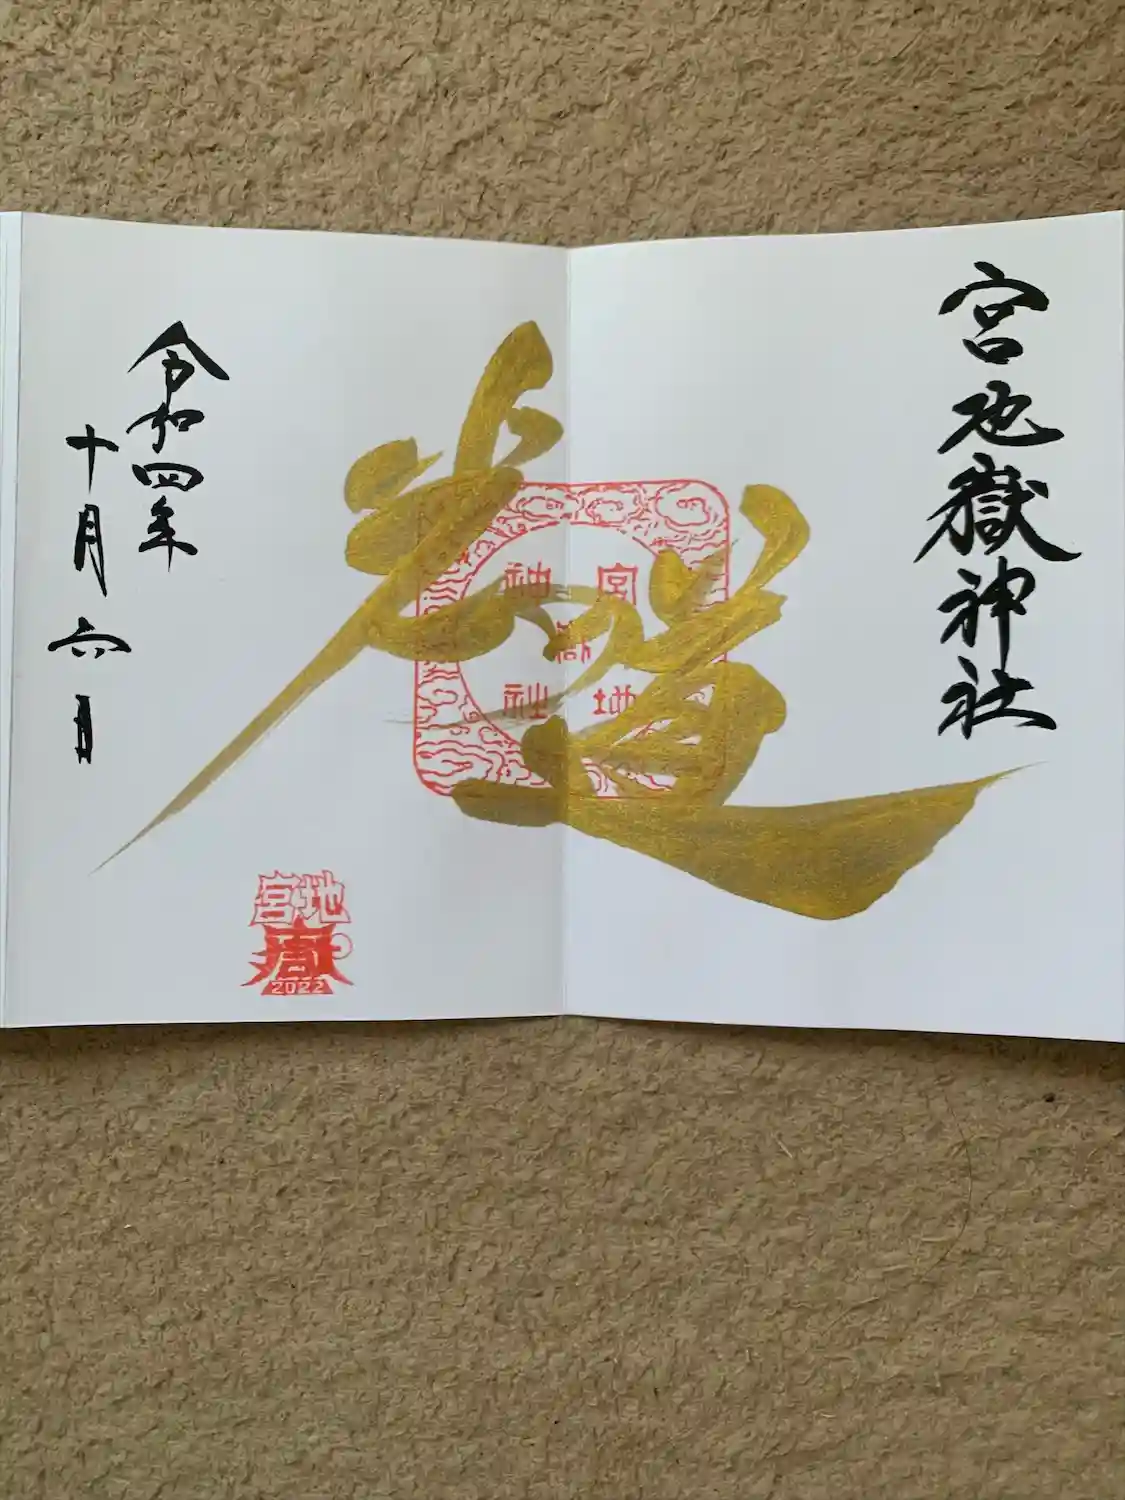 宮地嶽神社
光道
宮地
嶽
神社
令和四年
十月六日
宮地
嶽
2022